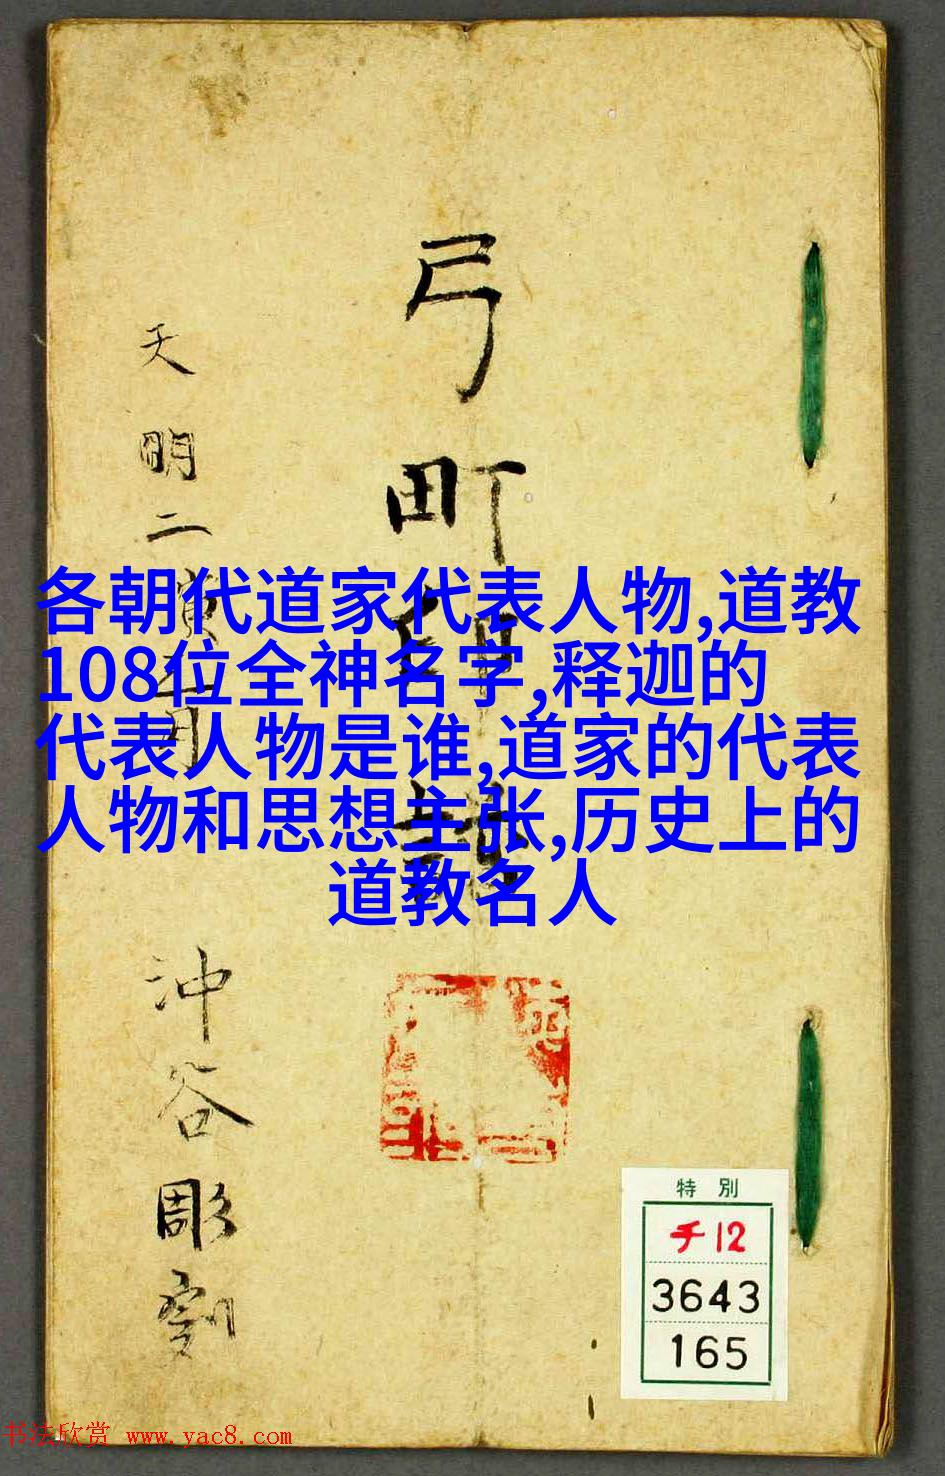 各朝代道家代表人物,道教
108位全神名字,释迦的
代表人物是谁,道家的代表
人物和思想主张,历史上的
道教名人
弓町印譜
天明二寅年
沖谷彫刻
特別
チ12
3643
165
书法欣赏 www.yac8.com